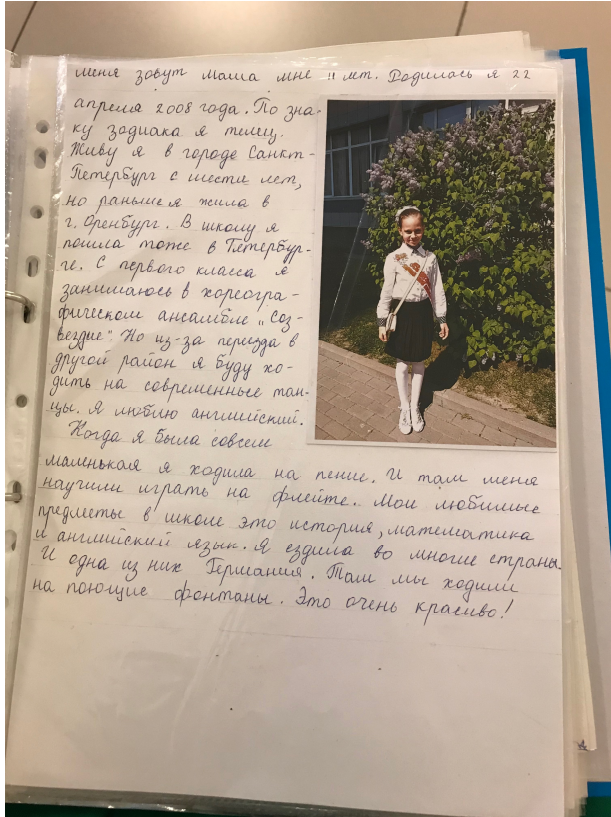 меня зовут Маша мне 11 лет. Родилась я 22
апреля 2008 года. По зна-
ку зодиака я телец.
Живу я в городе Санкт-
Петербург с шести лет,
но раньше я жила в
г. Оренбург. В школу я
пошла тоже в Петербур-
ге. С первого класса я
занимаюсь в хореогра-
фическом ансамбле „Соз-
вездие". Но из-за переезда в
другой район я буду хо-
дить на современные тан-
цы. Я люблю английский.
Когда я была совсем
маленькая я ходила на пение. И там меня
научили играть на флейте. Мои любимые
предметы в школе это история, математика
и английский язык. Я ездила во многие страны.
И одна из них Германия. Там мы ходили
на поющие фонтаны. Это очень красиво!